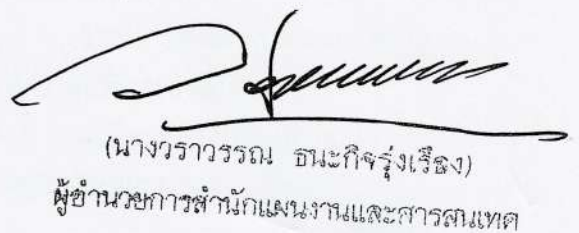 (นางวราวรรณ ธนะกิจรุ่งเรือง)
ผู้อำนวยการสำนักแผนงานและสารสนเทศ